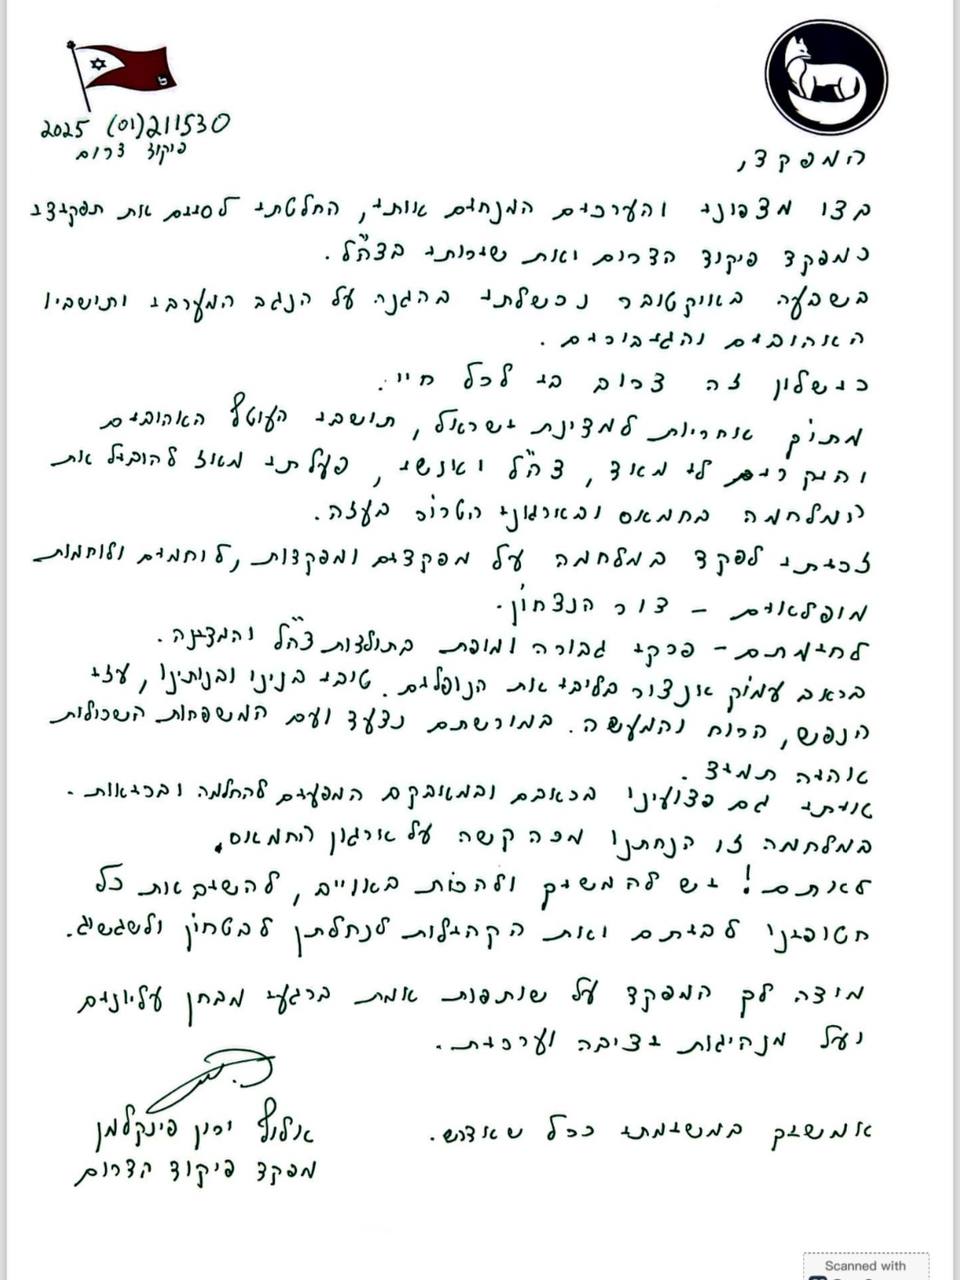 211530 (01) 2025
פיקוד דרום
המפקד,
בצו מצפוני והערכים המנחים אותי, החלטתי לסיים את תפקידי
כמפקד פיקוד הדרום ואת שירותי בצה"ל.
בשבעה באוקטובר נכשלתי בהגנה על הנגב המערבי ותושביו
האהובים והגיבורים.
כישלון זה צרוב בי לכל חיי.
מתוך אחריות למדינת ישראל, תושבי העוטף האהובים
והיקרים לי מאד, צה"ל ואנשיי, פעלתי מאז להוביל את
המלחמה בחמאס ובארגוני הטרור בעזה.
זכיתי לפקד במלחמה על מפקדים ומפקדות, לוחמים ולוחמות
מופלאים - דור הנצחון.
לחימתם - פרקי גבורה ומופת בתולדות צה"ל והמדינה.
בכאב עמוק אנצור בליבי את הנופלים. טובי בנינו ובנותינו, עזי
הנפש, הרוח והמעשה. במורשתם נצעד ועם המשפחות השכולות
אהיה תמיד.
איתי גם פצועינו בכאבם ובמאבקם המפעים להחלמה ובריאות.
במלחמה זו הנחתנו מכה קשה על ארגון החמאס.
לא תם! יש להמשיך ולהכות באויים, להשיב את כל
חטופינו לביתם ואת הקהילות לנחלתן לבטחון ולשגשוג.
מודה לך המפקד על שותפות אמת ברגעי מבחן עליונים
ועל מנהיגות יציבה וערכית.
אמשיך במשימתי ככל שאדרש.
אלוף ירון פינקלמן
מפקד פיקוד הדרום
Scanned with